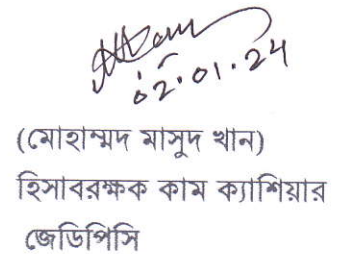 02.01.24
(মোহাম্মদ মাসুদ খান)
হিসাবরক্ষক কাম ক্যাশিয়ার
জেডিপিসি